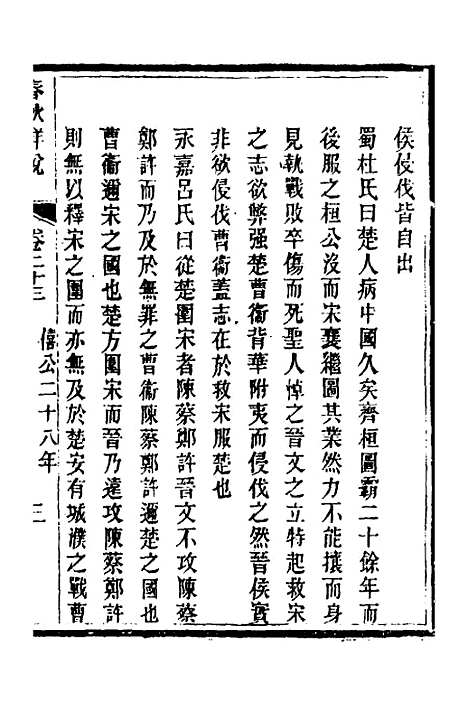 侯侵伐皆自出
蜀杜氏曰楚人病中國久矣齊桓圖霸二十餘年而
後服之桓公沒而宋襄繼圖其業然力不能攘而身
見執戰敗卒傷而死聖人悼之晉文之立特起救宋
之志欲弊强楚曹衞背華附夷而侵伐之然晉侯實
非欲侵伐曹衞蓋志在於救宋服楚也
永嘉呂氏曰從楚圍宋者陳蔡鄭許晉文不攻陳蔡
鄭許而乃及於無罪之曹衞陳蔡鄭許邇楚之國也
曹衞邇宋之國也楚方圍宋而晉乃遠攻陳蔡鄭許
則無以釋宋之圍而亦無及於楚安有城濮之戰曹
春秋詳說 卷二十三 僖公二十八年 三